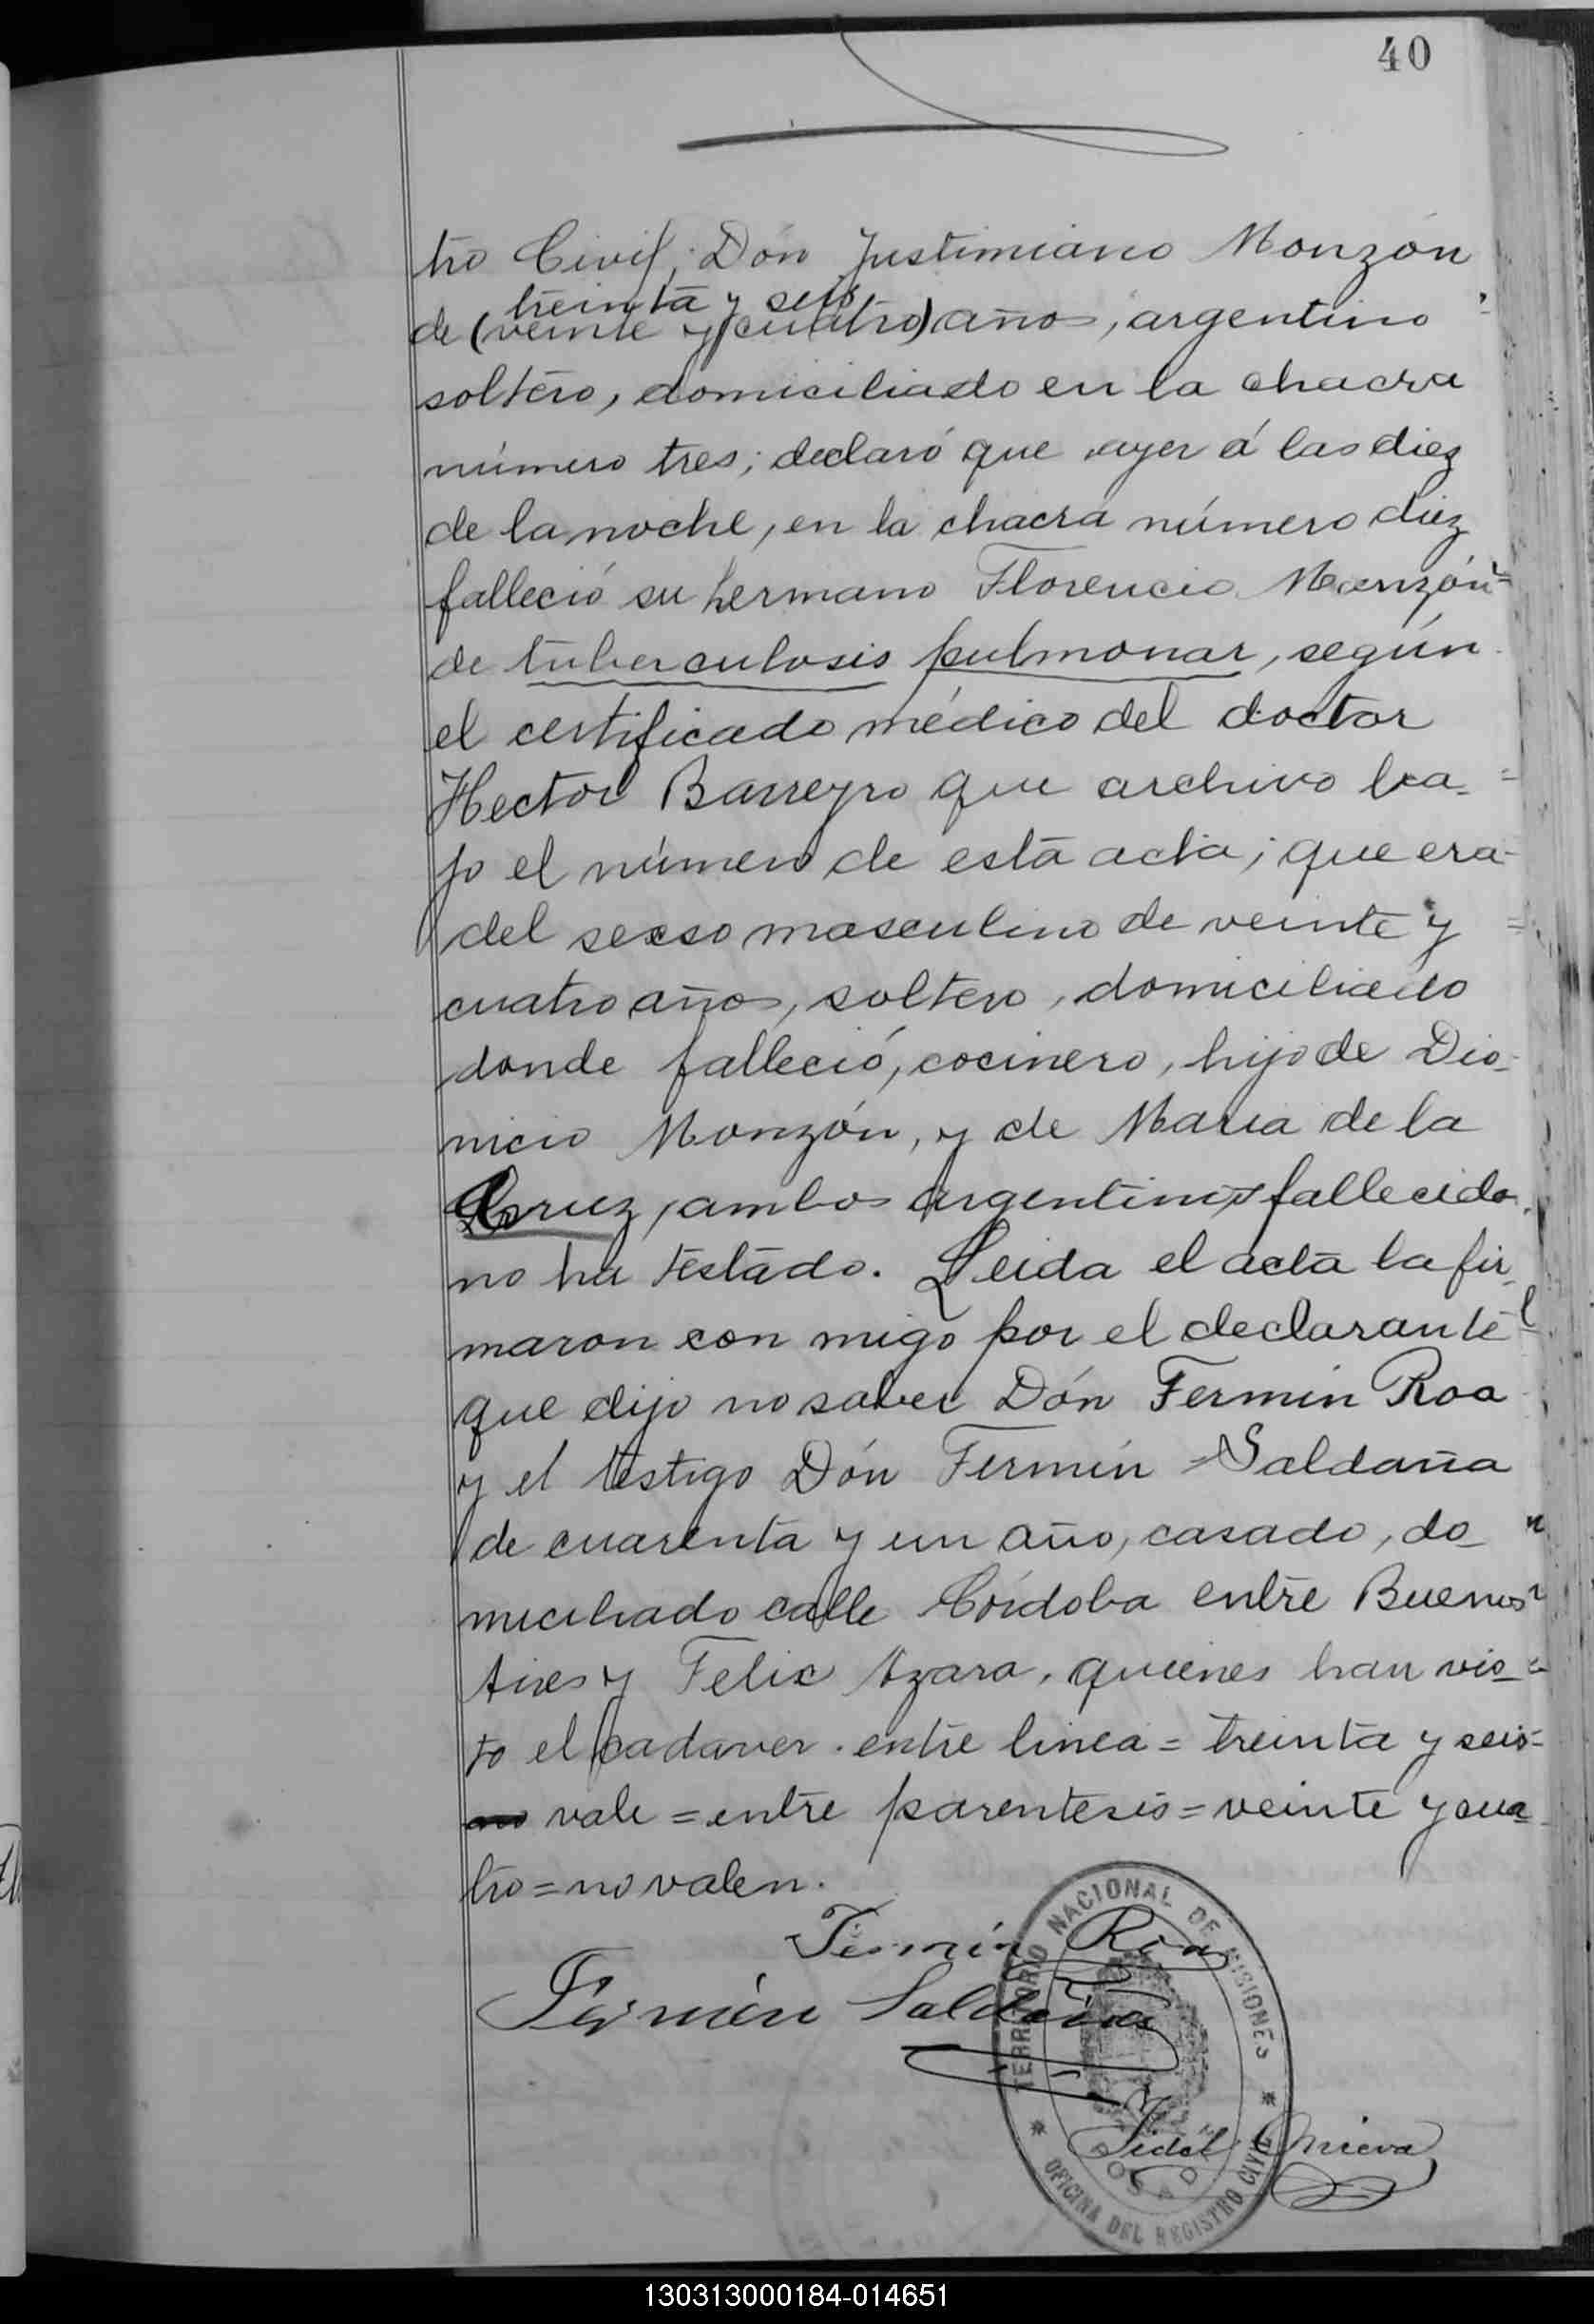 40
tro Civil; Dón Justimiano Monzón
treinta y seis
de (veinte y cuatro) años, argentino
soltero, domiciliado en la chacra
número tres; declaró que ayer á las diez
de la noche, en la chacra número diez
falleció su hermano Florencio Monzón
de tuberculosis pulmonar, según
el certificado médico del doctor
Hector Barreyro que archivo ba-
jo el número de esta acta; que era
del secso masculino de veinte y
cuatro años, soltero, domiciliado
donde falleció, cocinero, hijo de Dio-
nicio Monzón, y de Maria de la
Cruz, ambos argentinos fallecidos
no ha testado. Leida el acta la fir
maron con migo por el declarante
que dijo no saber Dón Fermin Roa
y el testigo Dón Fermin Saldaña
de cuarenta y un año, casado, do-
miciliado calle Córdoba entre Buenos
Aires y Felix Azara, quienes han vis-
to el cadaver. entre linea = treinta y seis =
vale = entre parentesis = veinte y cua
tro = no valen.
Fermin Roa
Fermin Saldaña
Fidel
TERRITORIO NACIONAL DE MISIONES
POSADAS
OFICINA DEL REGISTRO CIVIL
130313000184-014651